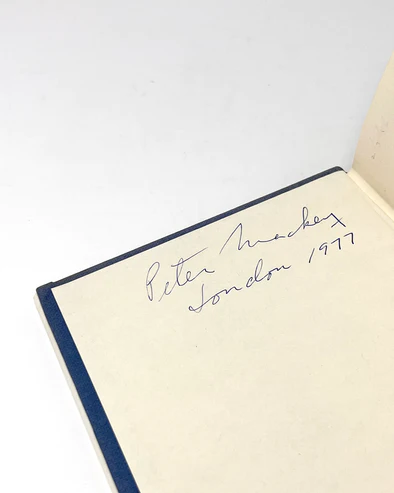 Peter Mackey
London 1977